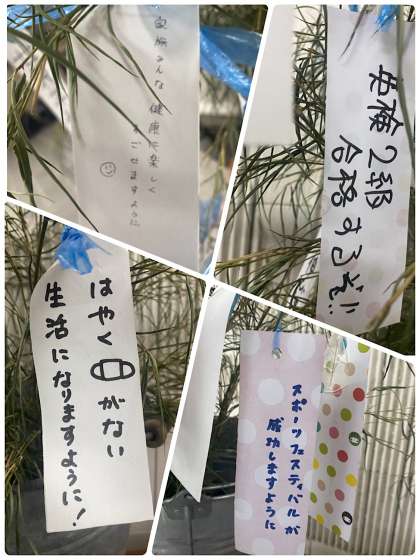 家族みんな健康に楽しく
すごせますように
英検2級
合格するぞ!!
はやく
がない
生活になりますように！
スポーツフェスティバルが
成功しますように